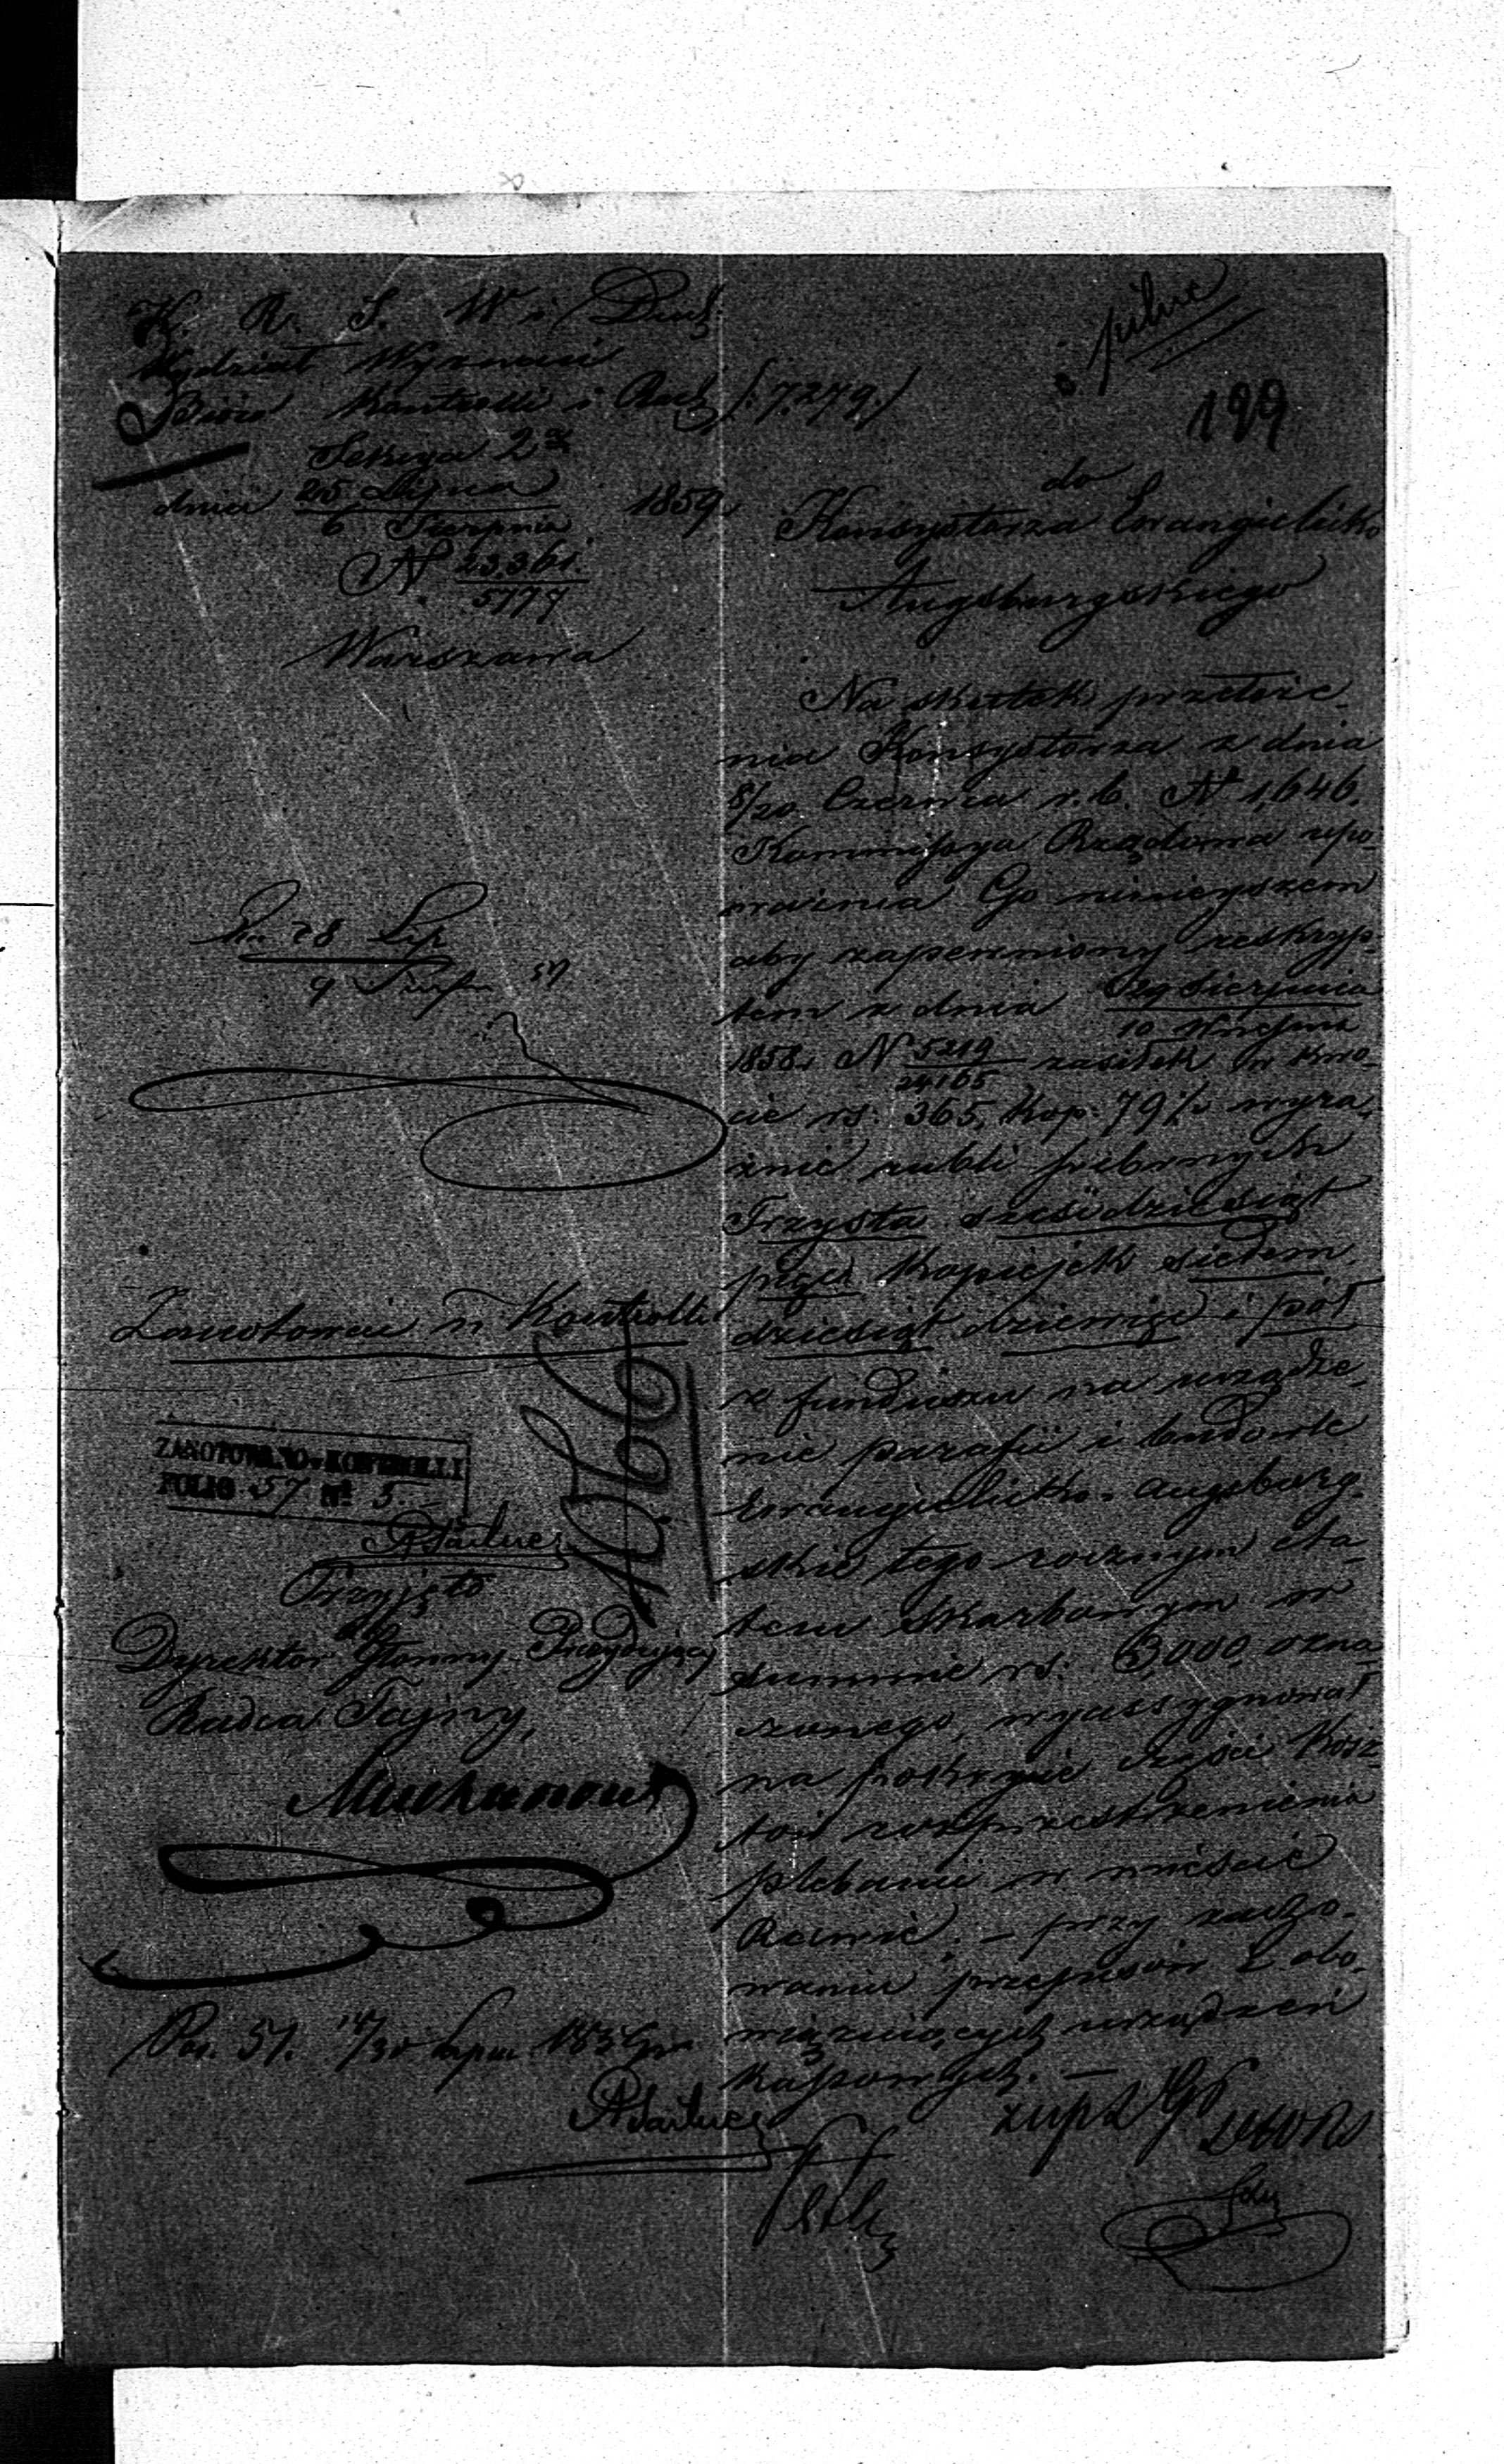 K. R. S. W. i Duch.
Wydział Wyznań
Biuro Kontrolli i Rach /:7,279:/
Sekcya 2ga
dnia 25 Lipca 1859
6 Sierpnia
N 23,361.
5777
Warszawa
pilne
199
do
Konsystorza Ewangielicko
Augsburgskiego
Na skutek przełoże-
nia Konsystorza z dnia
8/20 Czerwca r. b. No 1,646.
Kommissya Rządowa upo-
ważnia Go niniejszem
aby zapewniony reskryp-
tem z dnia Sierpnia
10 Września
1858 N 5219
24165
zasiłek w kwo-
cie rs. 365, kop. 79½ wyra-
źnie rubli srebrnych
Trzysta sześćdziesiąt
pięć kopiejek siedem-
dziesiąt dziewięć i pół
z funduszu na urządze-
nie parafii i budowle
Ewangielicko-Augsburg-
skie tego rocznym eta-
tem skarbowym w
summie rs. 3,000 ozna-
czonego, wyassygnował
na pokrycie części kosz-
tów rozprzestrzenienia
plebanii w mieście
Rawie; – przy zacho-
waniu przepisów z obo-
wiązujących urządzeń
kassowych. –
28 Lip
9 Sierp 59
Zanotować w Kontrolli
ZANOTOWANO w KONTROLLI
FOLIO 57 No 5.
Przyjęto
1066
Dyrektor Główny Prezydujący
Radca Tajny,
Muchanow
Pos. 57. 18/30 Lipca 1859